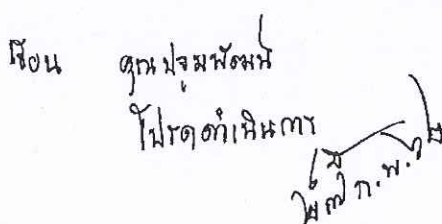 เรียน คุณปฐมพัฒน์
โปรดดำเนินการ
ก.พ.